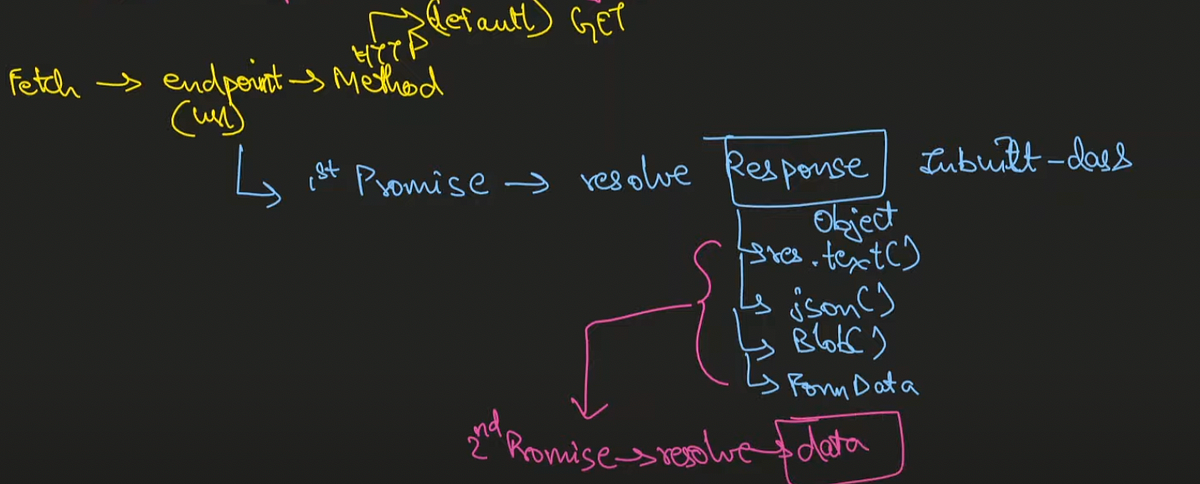 (default) GET
HTTP
Fetch → endpoint → Method
(url)
1st Promise → resolve Response Inbuilt-class
Object
res.text()
json()
Blob()
FormData
2nd Promise → resolve → data